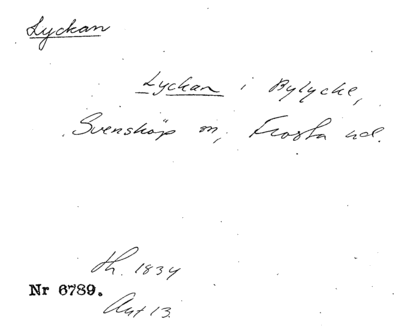 Lyckan
Lyckan i Bylycke,
Svensköp sn, Frosta hd.
th. 1834
Nr 6789.
Akt 13.